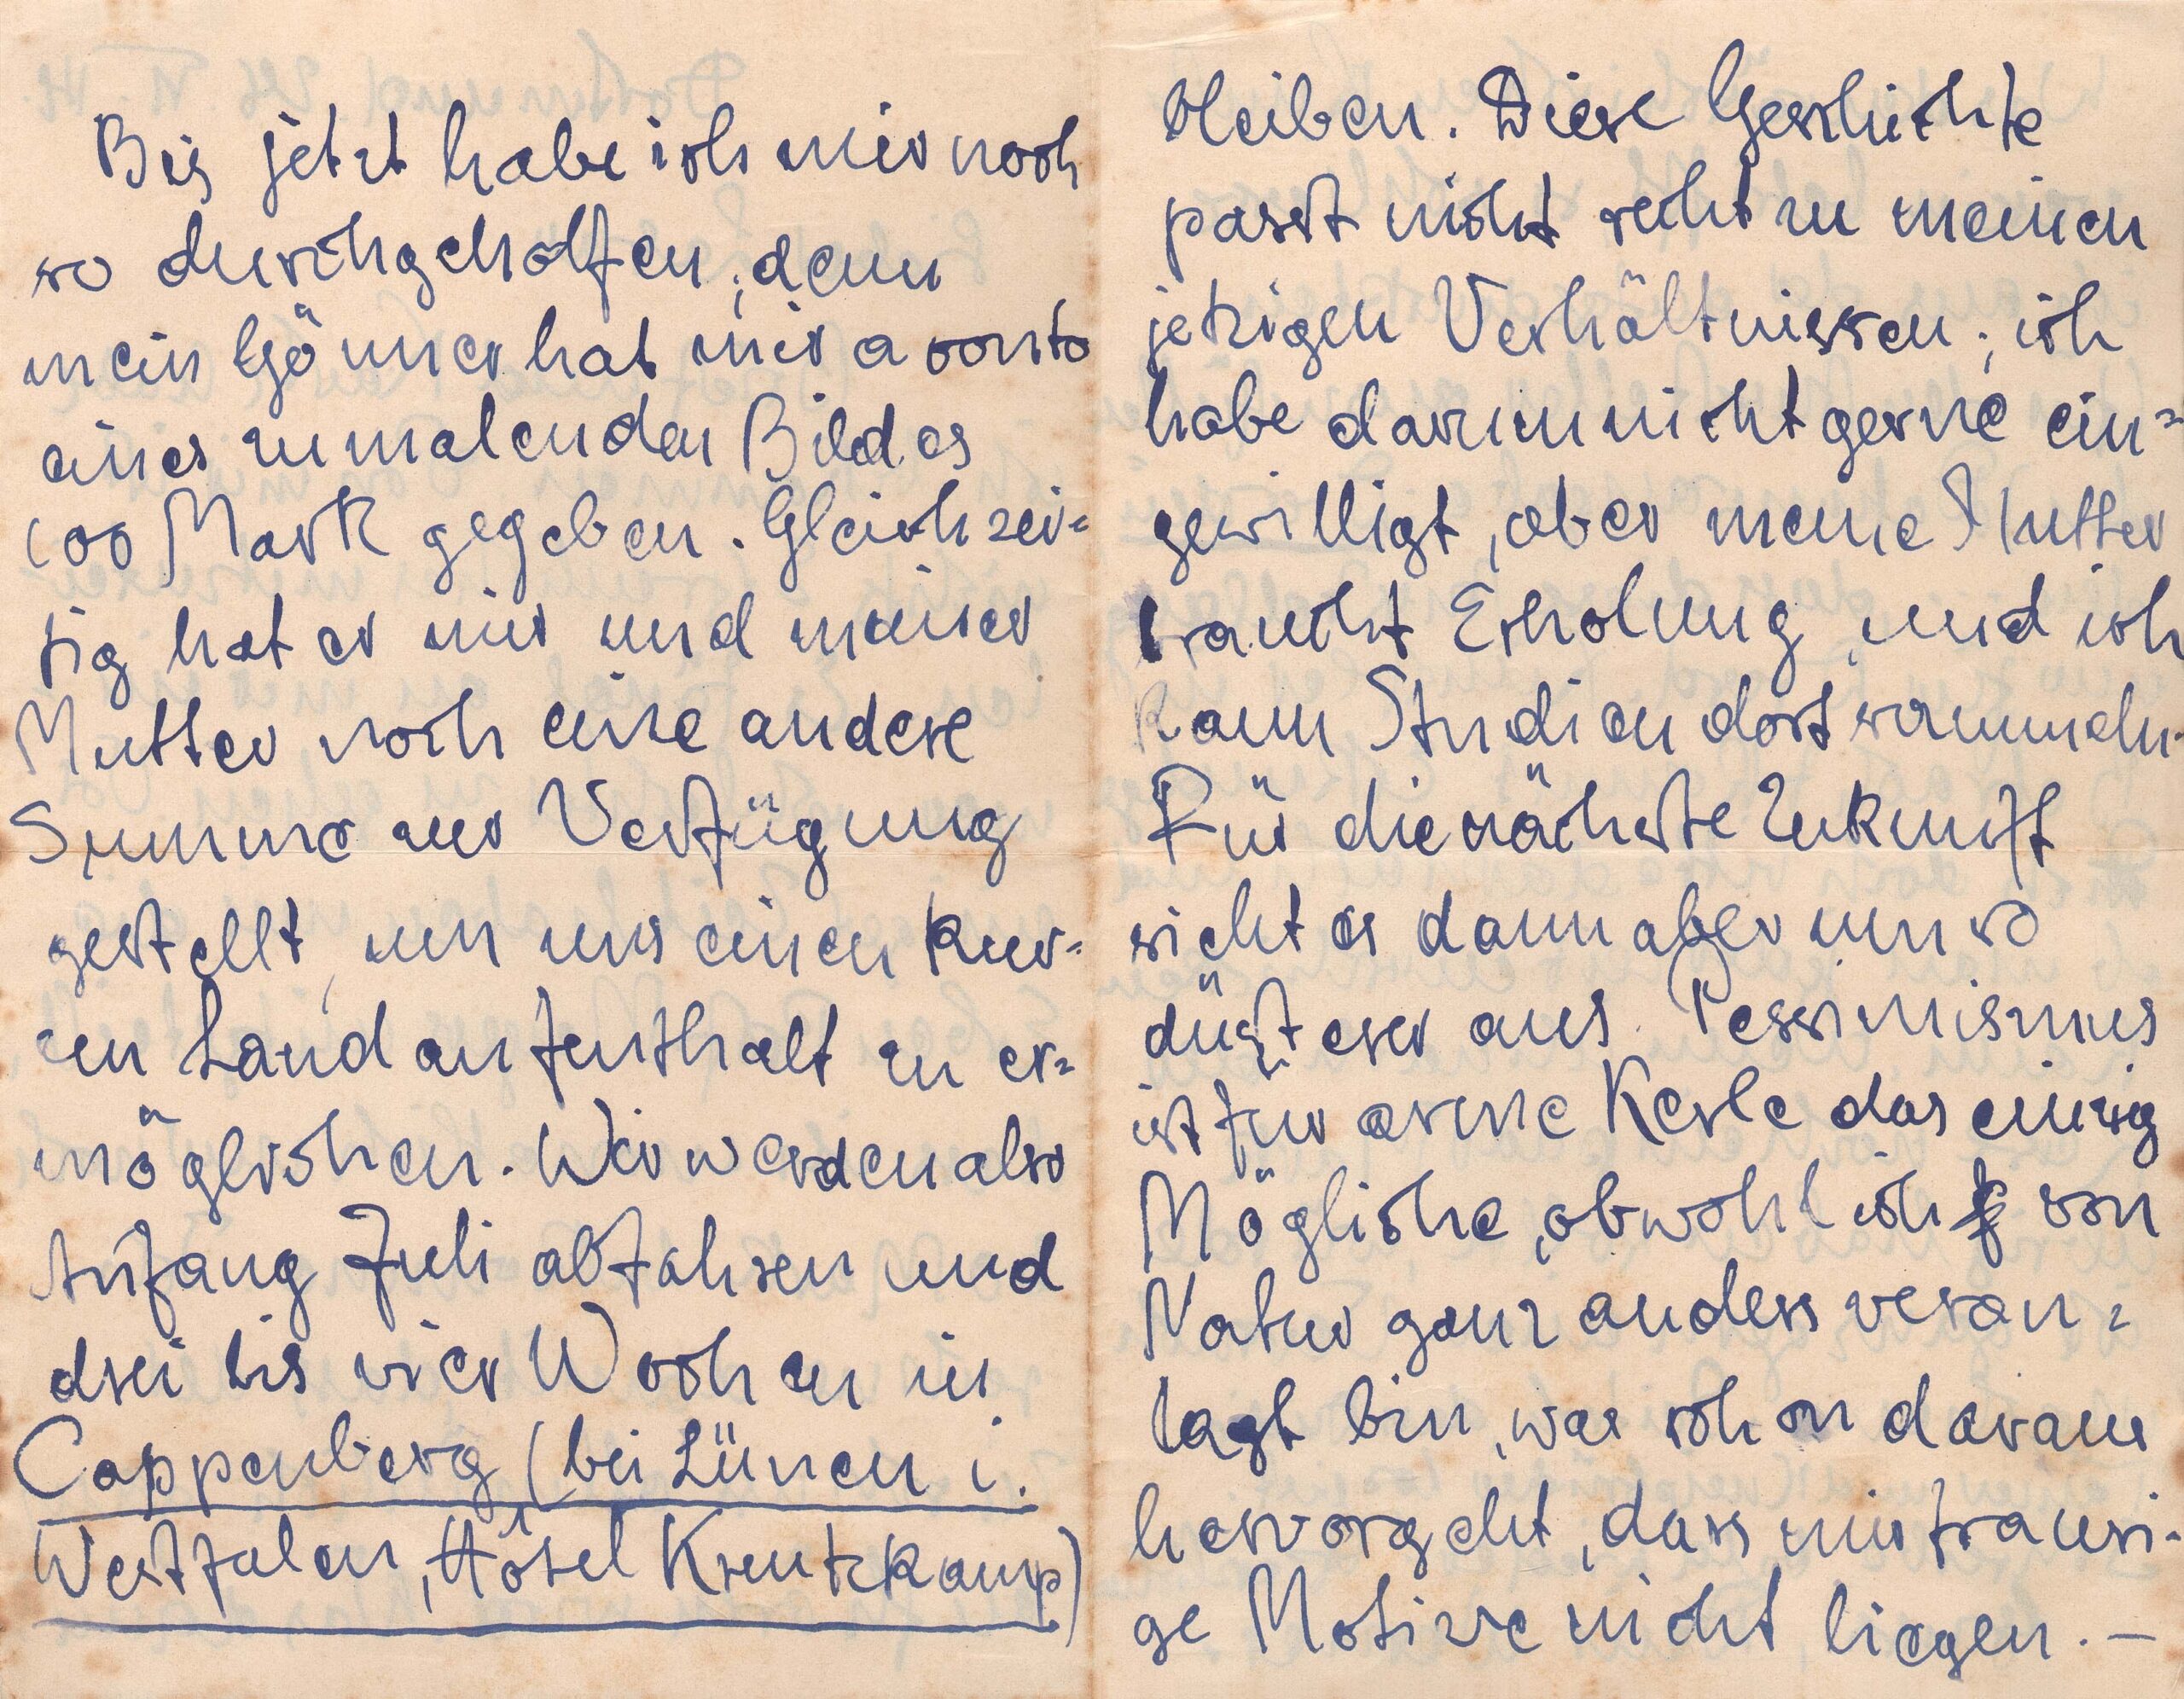 Bis jetzt habe ich mir noch
so durchgeholfen, denn
mein Gönner hat mir a conto
eines zu malenden Bildes
100 Mark gegeben. Gleichzei=
tig hat er mir und meiner
Mutter noch eine andere
Summe zur Verfügung
gestellt, um uns einen kur=
zen Landaufenthalt zu er=
möglichen. Wir werden also
Anfang Juli abfahren und
drei bis vier Wochen in
Cappenberg (bei Lünen i.
Westfalen, Hôtel Kreutzkamp)
bleiben. Diese Geschichte
passt nicht recht zu meinen
jetzigen Verhältnissen; ich
habe darum nicht gerne ein=
gewilligt, aber meine Mutter
braucht Erholung, und ich
kann Studien dort sammeln.
Für die nächste Zukunft
sieht es dann aber um so
düsterer aus. Pessimismus
ist für arme Kerle das einzig
Mögliche, obwohl ich von
Natur ganz anders veran=
lagt bin, was schon daraus
hervorgeht, dass mir trauri-
ge Motive nicht liegen. —